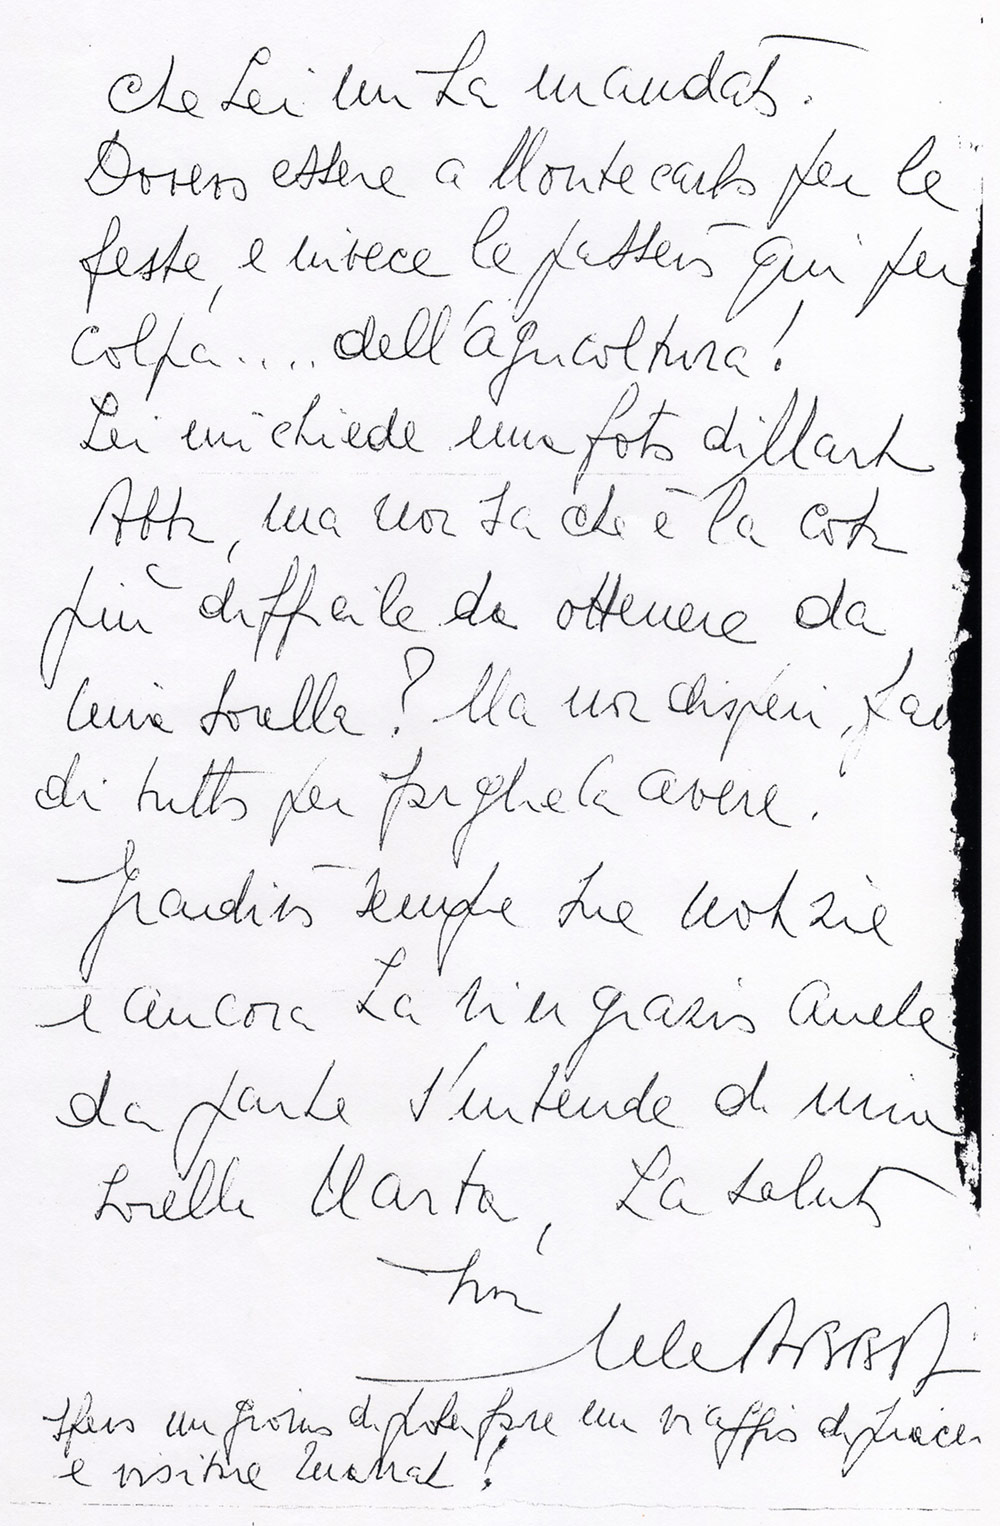 che Lei mi ha mandato.
Dovevo essere a Montecarlo per le
feste, e invece le passerò qui per
colpa.... dell'agricoltura!
Lei mi chiede una foto di Marta
Abba, ma non sa che è la cosa
più difficile da ottenere da
mia sorella? Ma non disperi, farò
di tutto per fargliela avere.
Gradirò sempre Sue notizie
e ancora La ringrazio anche
da parte s'intende di mia
sorella Marta, La saluto
Sua
Cele ABBA
Spero un giorno di poter fare un viaggio di piacere
e visitare